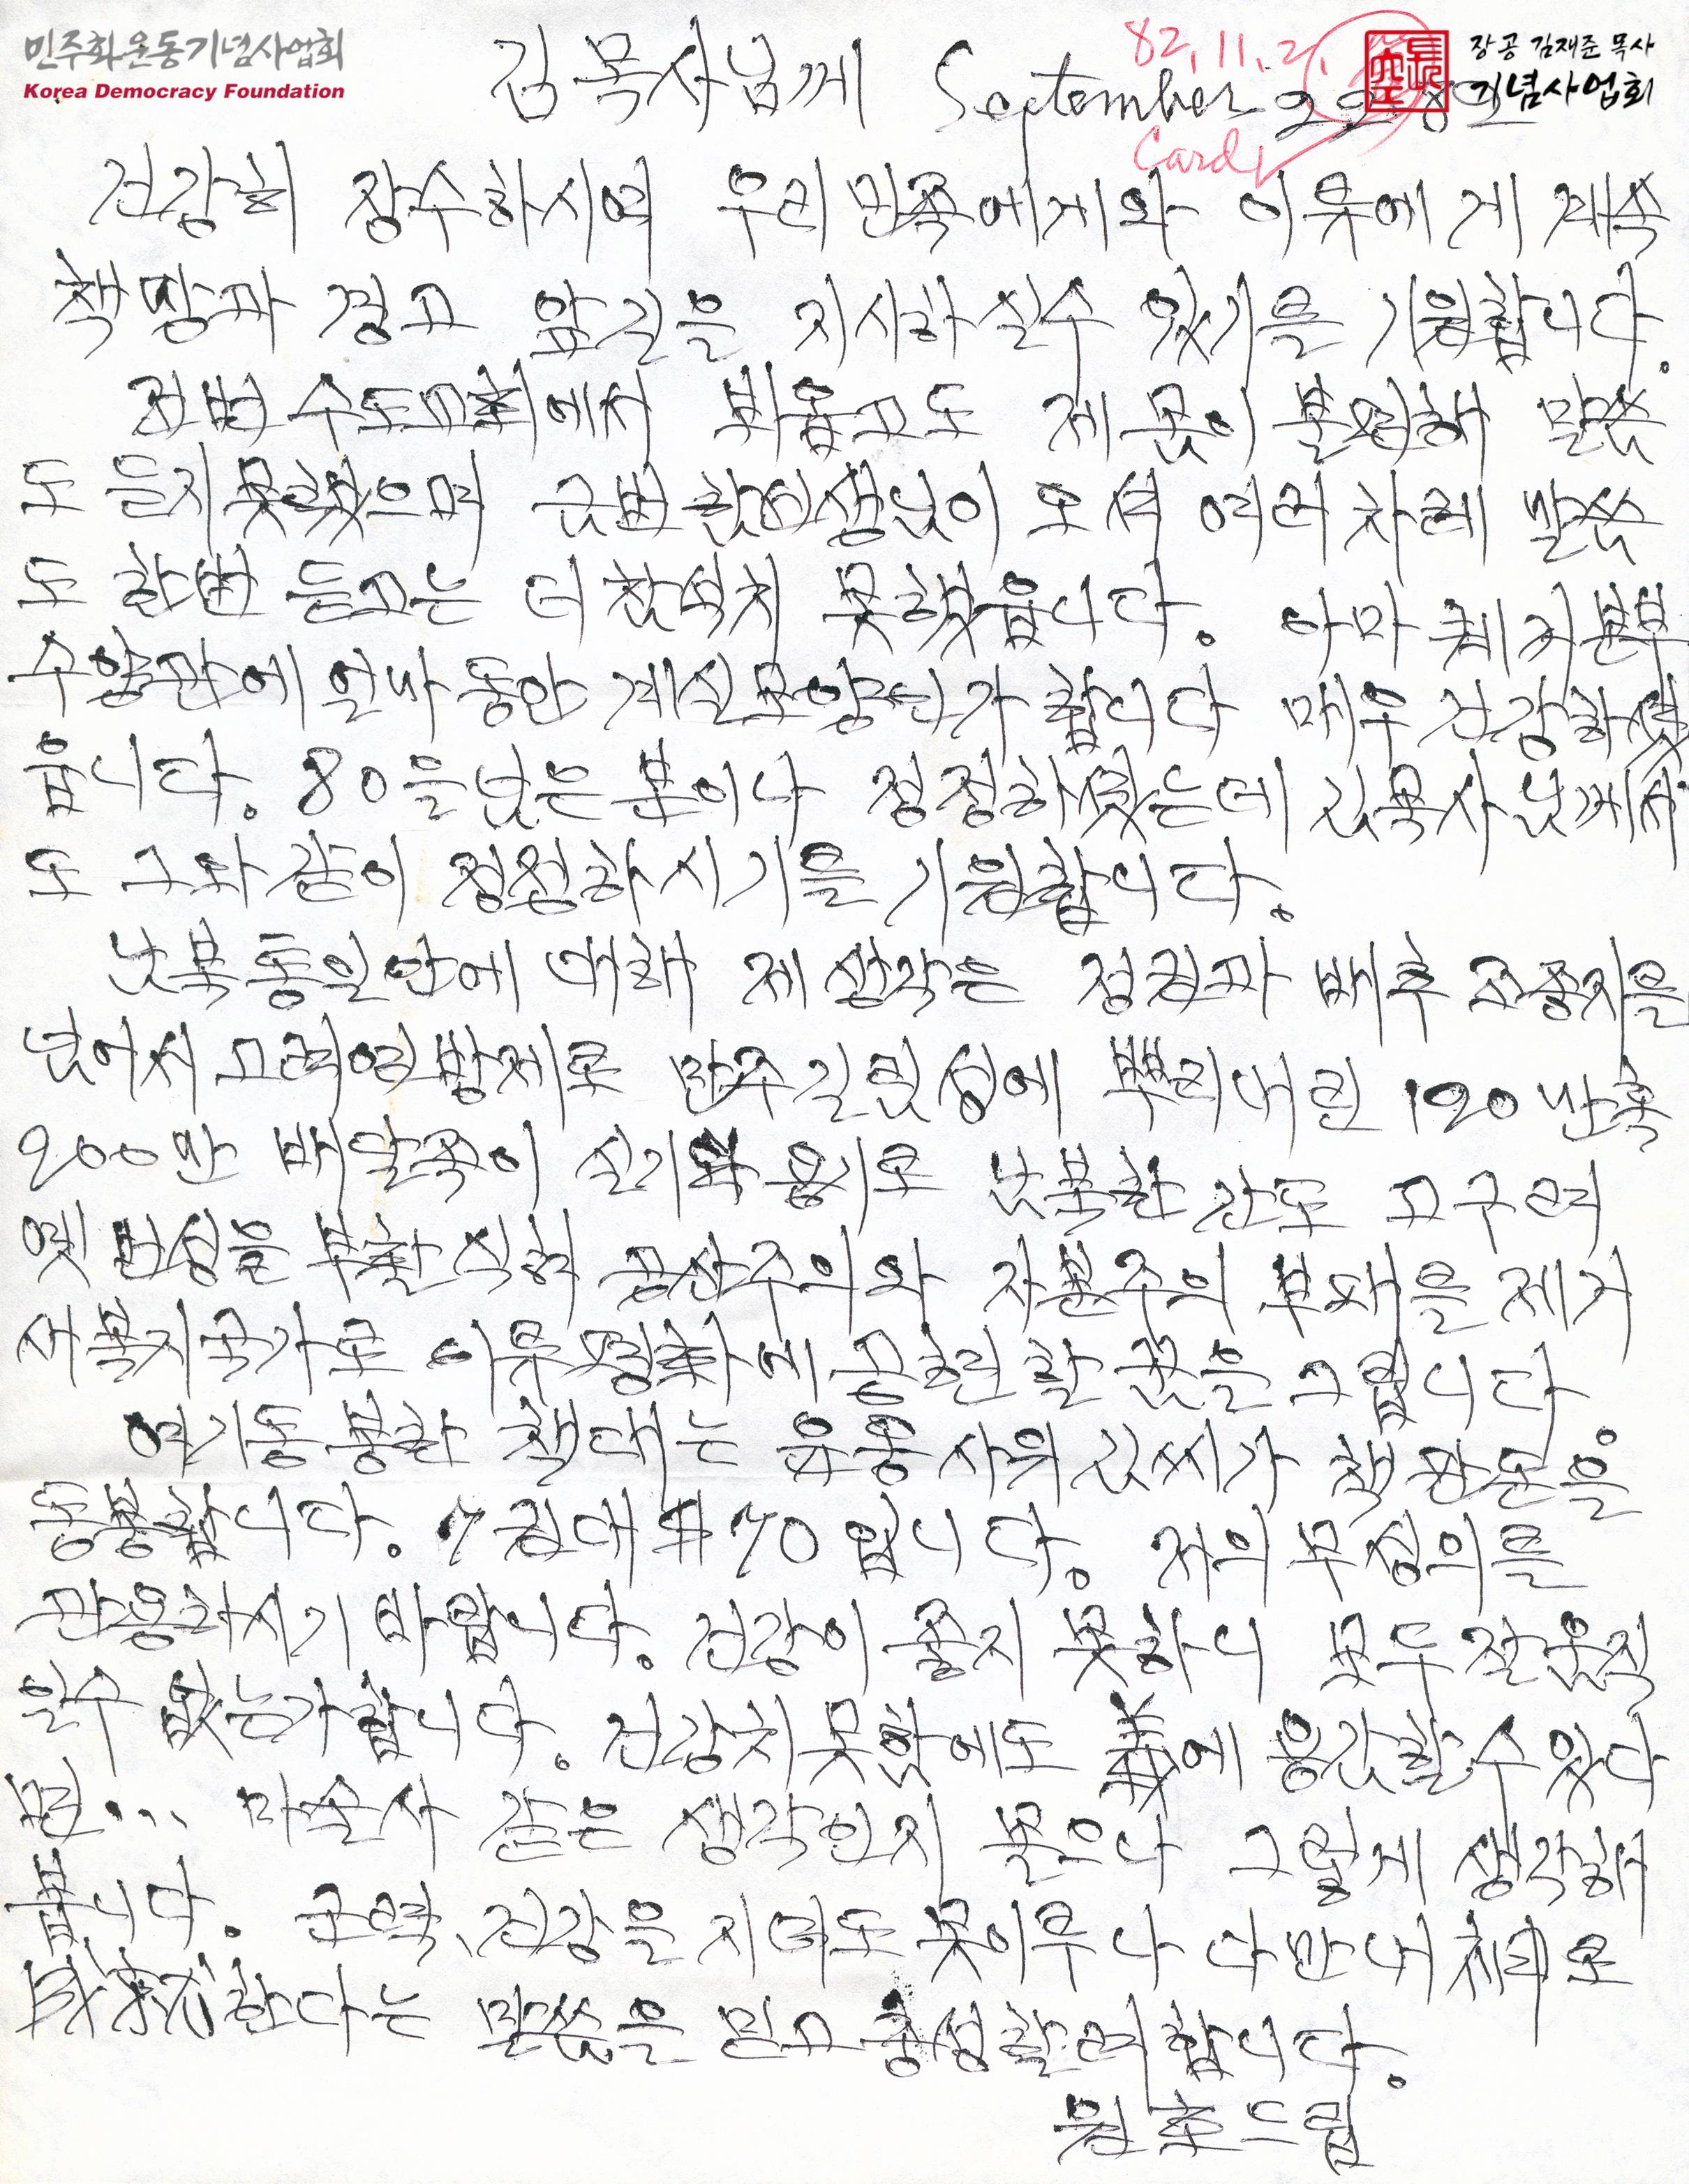 민주화운동기념사업회
Korea Democracy Foundation
장공 김재준 목사
기념사업회
82. 11. 2.
Card
김 목사님께 September 22
건강히 장수하시여 우리 민족에게와 인류에게 계속
책망과 경고 앞길을 지시하실수 있기를 기원합니다.
전번 수도교회에서 뵈옵고도 제 몸이 불편해 말씀
도 듣지 못했으며 금번 함선생님이 오셔 여러차례 말씀
도 한번 듣고는 더 참석치 못했읍니다. 아마
수양관에 얼마동안 계실모양인가 합니다 매우 건강하셨
읍니다. 80을 넘은 분이나 정정하셨는데 김목사님께서
도 그와 같이 정정하시기를 기원합니다.
남북통일안에 대해 제 생각은 정경과 배추 고충지을
넘어서 고려연방제로 만주 길림성에 뿌리내린 190만 혹
200만 배달족이 슬기와 용기로 남북한 간도 고구려
옛 번성을 부활식혀 공산주의와 자본주의 부패을 제거
새 복지국가로 인류평화에 공헌할 꿈을 그립니다.
여기 동봉한 책대는 유종 사위 김씨가 책 판돈을
동봉합니다. 7권대 $70입니다. 저의 무성의를
관용하시기 바랍니다. 건강이 좋지 못하니 모두 잘 움직
일수 없는가 합니다. 건강치 못함에도 義에 용감할수 있다
면... 마술사 같은 생각인지 몰으나 그렇게 생각해
봅니다. 군력, 건강을 지녀도 못이루나 다만 내 神으로
成就한다는 말씀을 믿고 충성할려 합니다.
원호드림